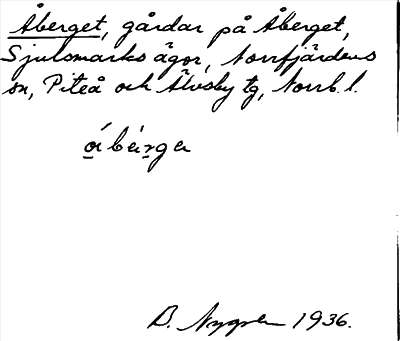 Åberget, gårdar på Åberget,
Sjulsmarks ägor, Norrfjärdens
sn, Piteå och Älvsby tg, Norrb. l.
åbérge
B. Nygren 1936.